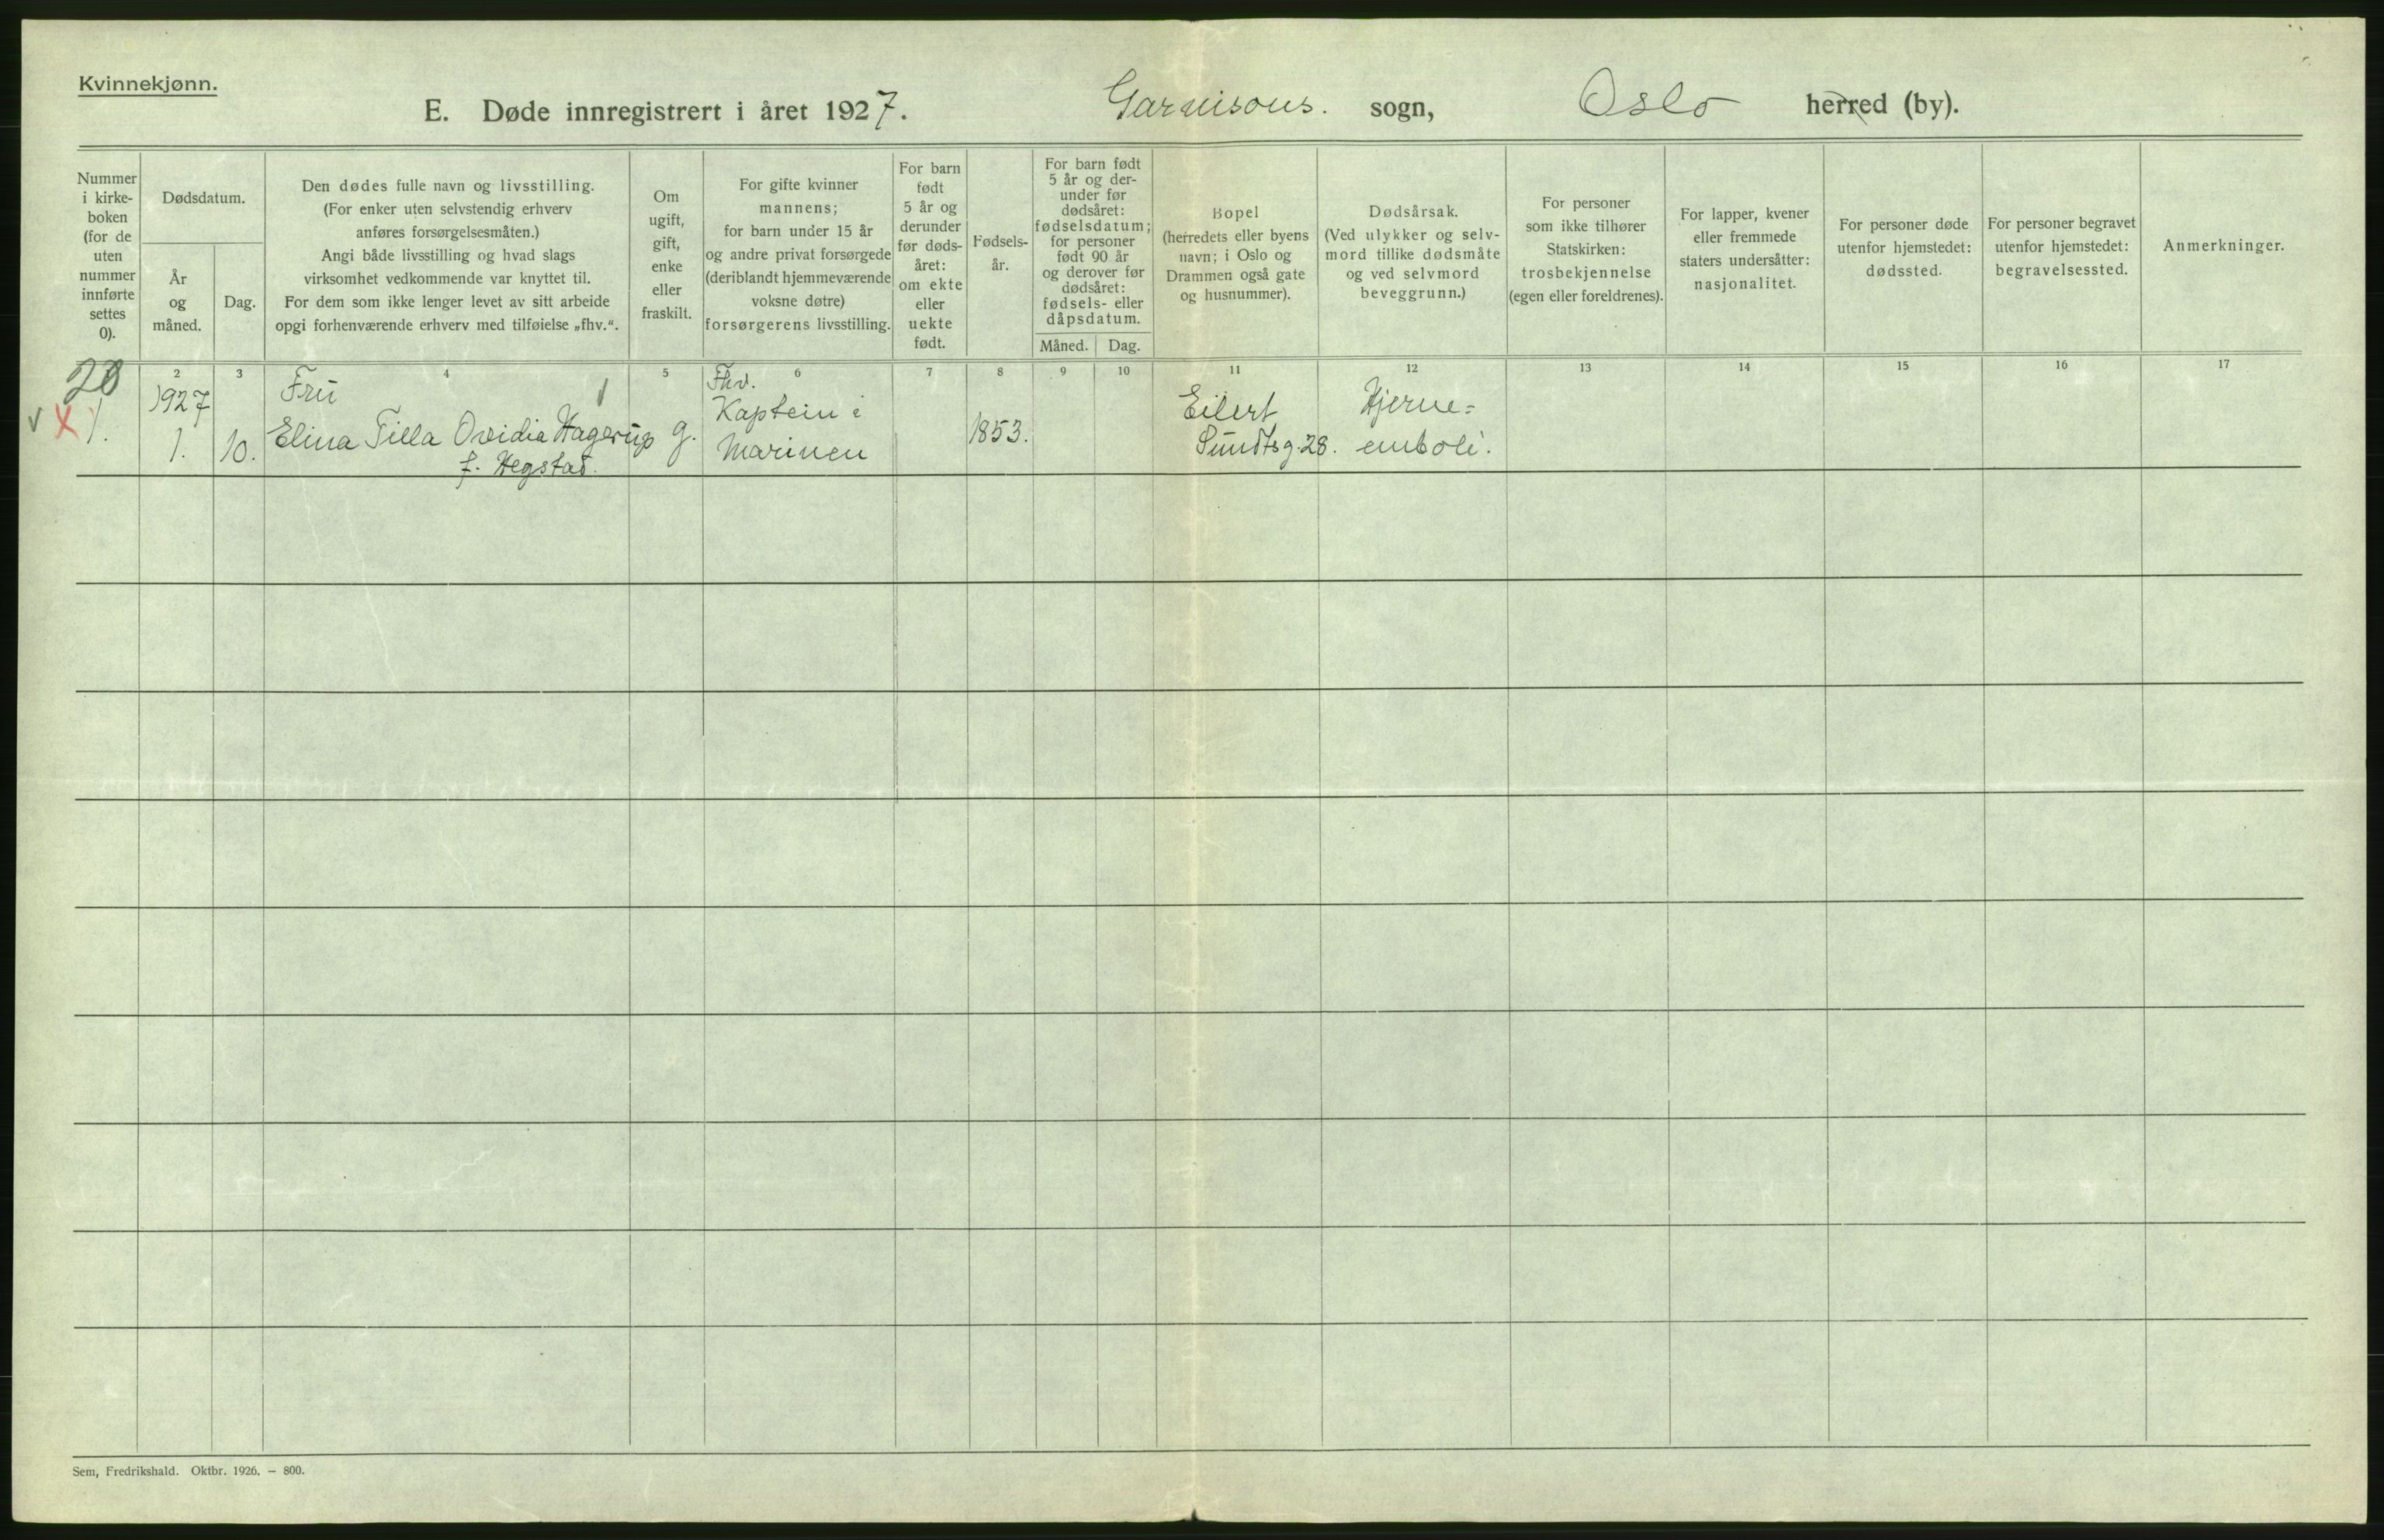 Kvinnekjønn.
E. Døde innregistrert i året 1927. Garnisons. sogn, Oslo herred (by).
Nummer i kirke-boken (for de uten nummer innførte settes 0).
Dødsdatum.
År og måned.
Dag.
Den dødes fulle navn og livsstilling.
(For enker uten selvstendig erhverv
anføres forsørgelsesmåten.)
Angi både livsstilling og hvad slags
virksomhet vedkommende var knyttet til.
For dem som ikke lenger levet av sitt arbeide
opgi forhenværende erhverv med tilføielse „fhv.“.
Om
ugift,
gift,
enke
eller
fraskilt.
For gifte kvinner
mannens;
for barn under 15 år
og andre privat forsørgede
(deriblandt hjemmeværende
voksne døtre)
forsørgerens livsstilling.
For barn
født
5 år og
derunder
før døds-
året:
om ekte
eller
uekte
født.
Fødsels-
år.
For barn født
5 år og der-
under før
dødsåret:
fødselsdatum;
for personer
født 90 år
og derover før
dødsåret:
fødsels- eller
dåpsdatum.
Måned.
Dag.
Bopel
(herredets eller byens
navn; i Oslo og
Drammen også gate
og husnummer).
Dødsårsak.
(Ved ulykker og selv-
mord tillike dødsmåte
og ved selvmord
beveggrunn.)
For personer
som ikke tilhører
Statskirken:
trosbekjennelse
(egen eller foreldrenes).
For lapper, kvener
eller fremmede
staters undersåtter:
nasjonalitet.
For personer døde
utenfor hjemstedet:
dødssted.
For personer begravet
utenfor hjemstedet:
begravelsessted.
Anmerkninger.
2 3 4 5 6 7 8 9 10 11 12 13 14 15 16 17
20
1.
1927
1.
10.
Fru
Elina Tilla Ovidia Hagerup
f. Hegstad.
g.
Fhv.
Kaptein i
Marinen
1853.
Eilert
Sundtsg. 28.
Hjerne=
emboli.
Sem, Fredrikshald. Oktbr. 1926. — 800.